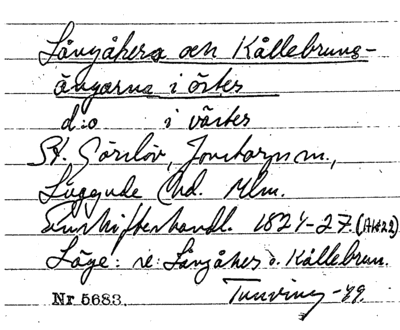 Långåkers och Kållebrungs-
ängarna i öster
d:o i väster
St. Görslöv, Jonstorps sn.,
Luggude hd. Mlm.
Enskifteshandl. 1824-27. (Akt 22)
Läge: se: Långåker o. Kållebrun.
Nr 5683. Tunving -49.